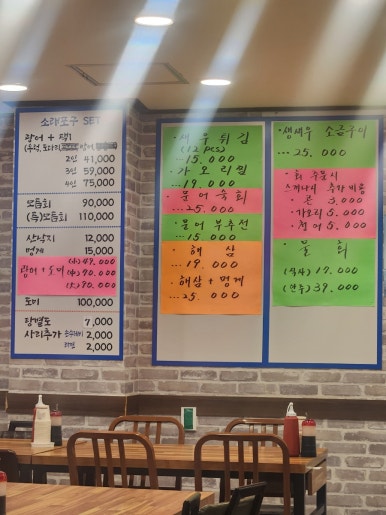 소래포구 SET
광어 + 택1
(우럭, 도다리
2인 41,000
3인 59,000
4인 75,000
모듬회 90,000
(특)모듬회 110,000
산낙지 12,000
멍게 15,000
광어 + 도미
(소) 49.000
(중) 90.000
(대)
도미 100,000
탕별도 7,000
사리추가 2,000
라면 2,000
· 새우튀김
(12 pcs)
... 15.000
· 가오리찜
... 19.000
· 문어숙회
... 25.000
· 문어 부추전
... 15.000
· 해삼
... 19.000
· 해삼 + 멍게
... 25.000
· 생새우 소금구이
... 25.000
· 회 주문시
스끼다시 추가 비용
5.000
· 가오리 5.000
5.000
· 물회
19.000
39.000